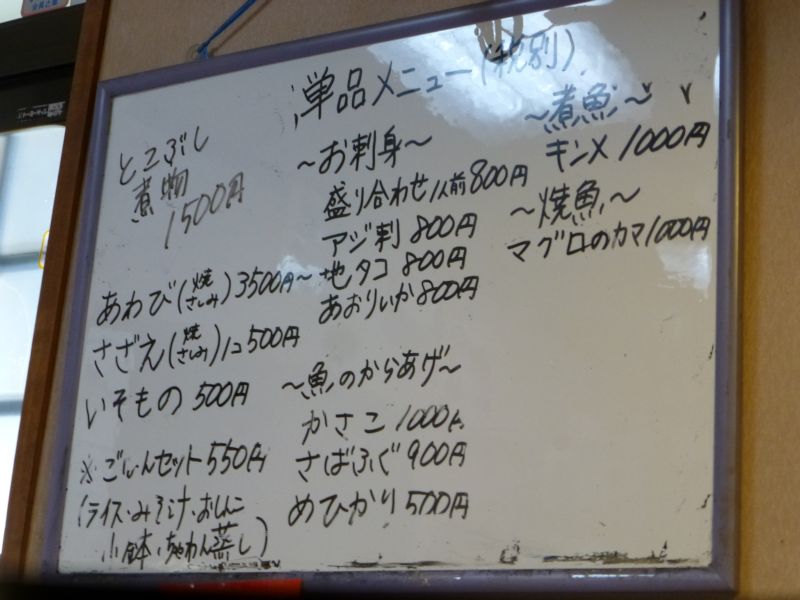 単品メニュー(税別)
とこぶし
煮物
1500円
あわび(焼 さしみ)3500円~
さざえ(焼 さしみ)1コ500円
いそもの 500円
※ごはんセット550円
(ライス・みそ汁・おしんこ
小鉢・ちゃわん蒸し)
~お刺身~
盛り合わせ1人前800円
アジ刺 800円
地タコ 800円
あおりいか800円
~魚のからあげ~
かさこ 1000円
さばふぐ900円
めひかり500円
~煮魚~
キンメ 1000円
~焼魚~
マグロのカマ1000円